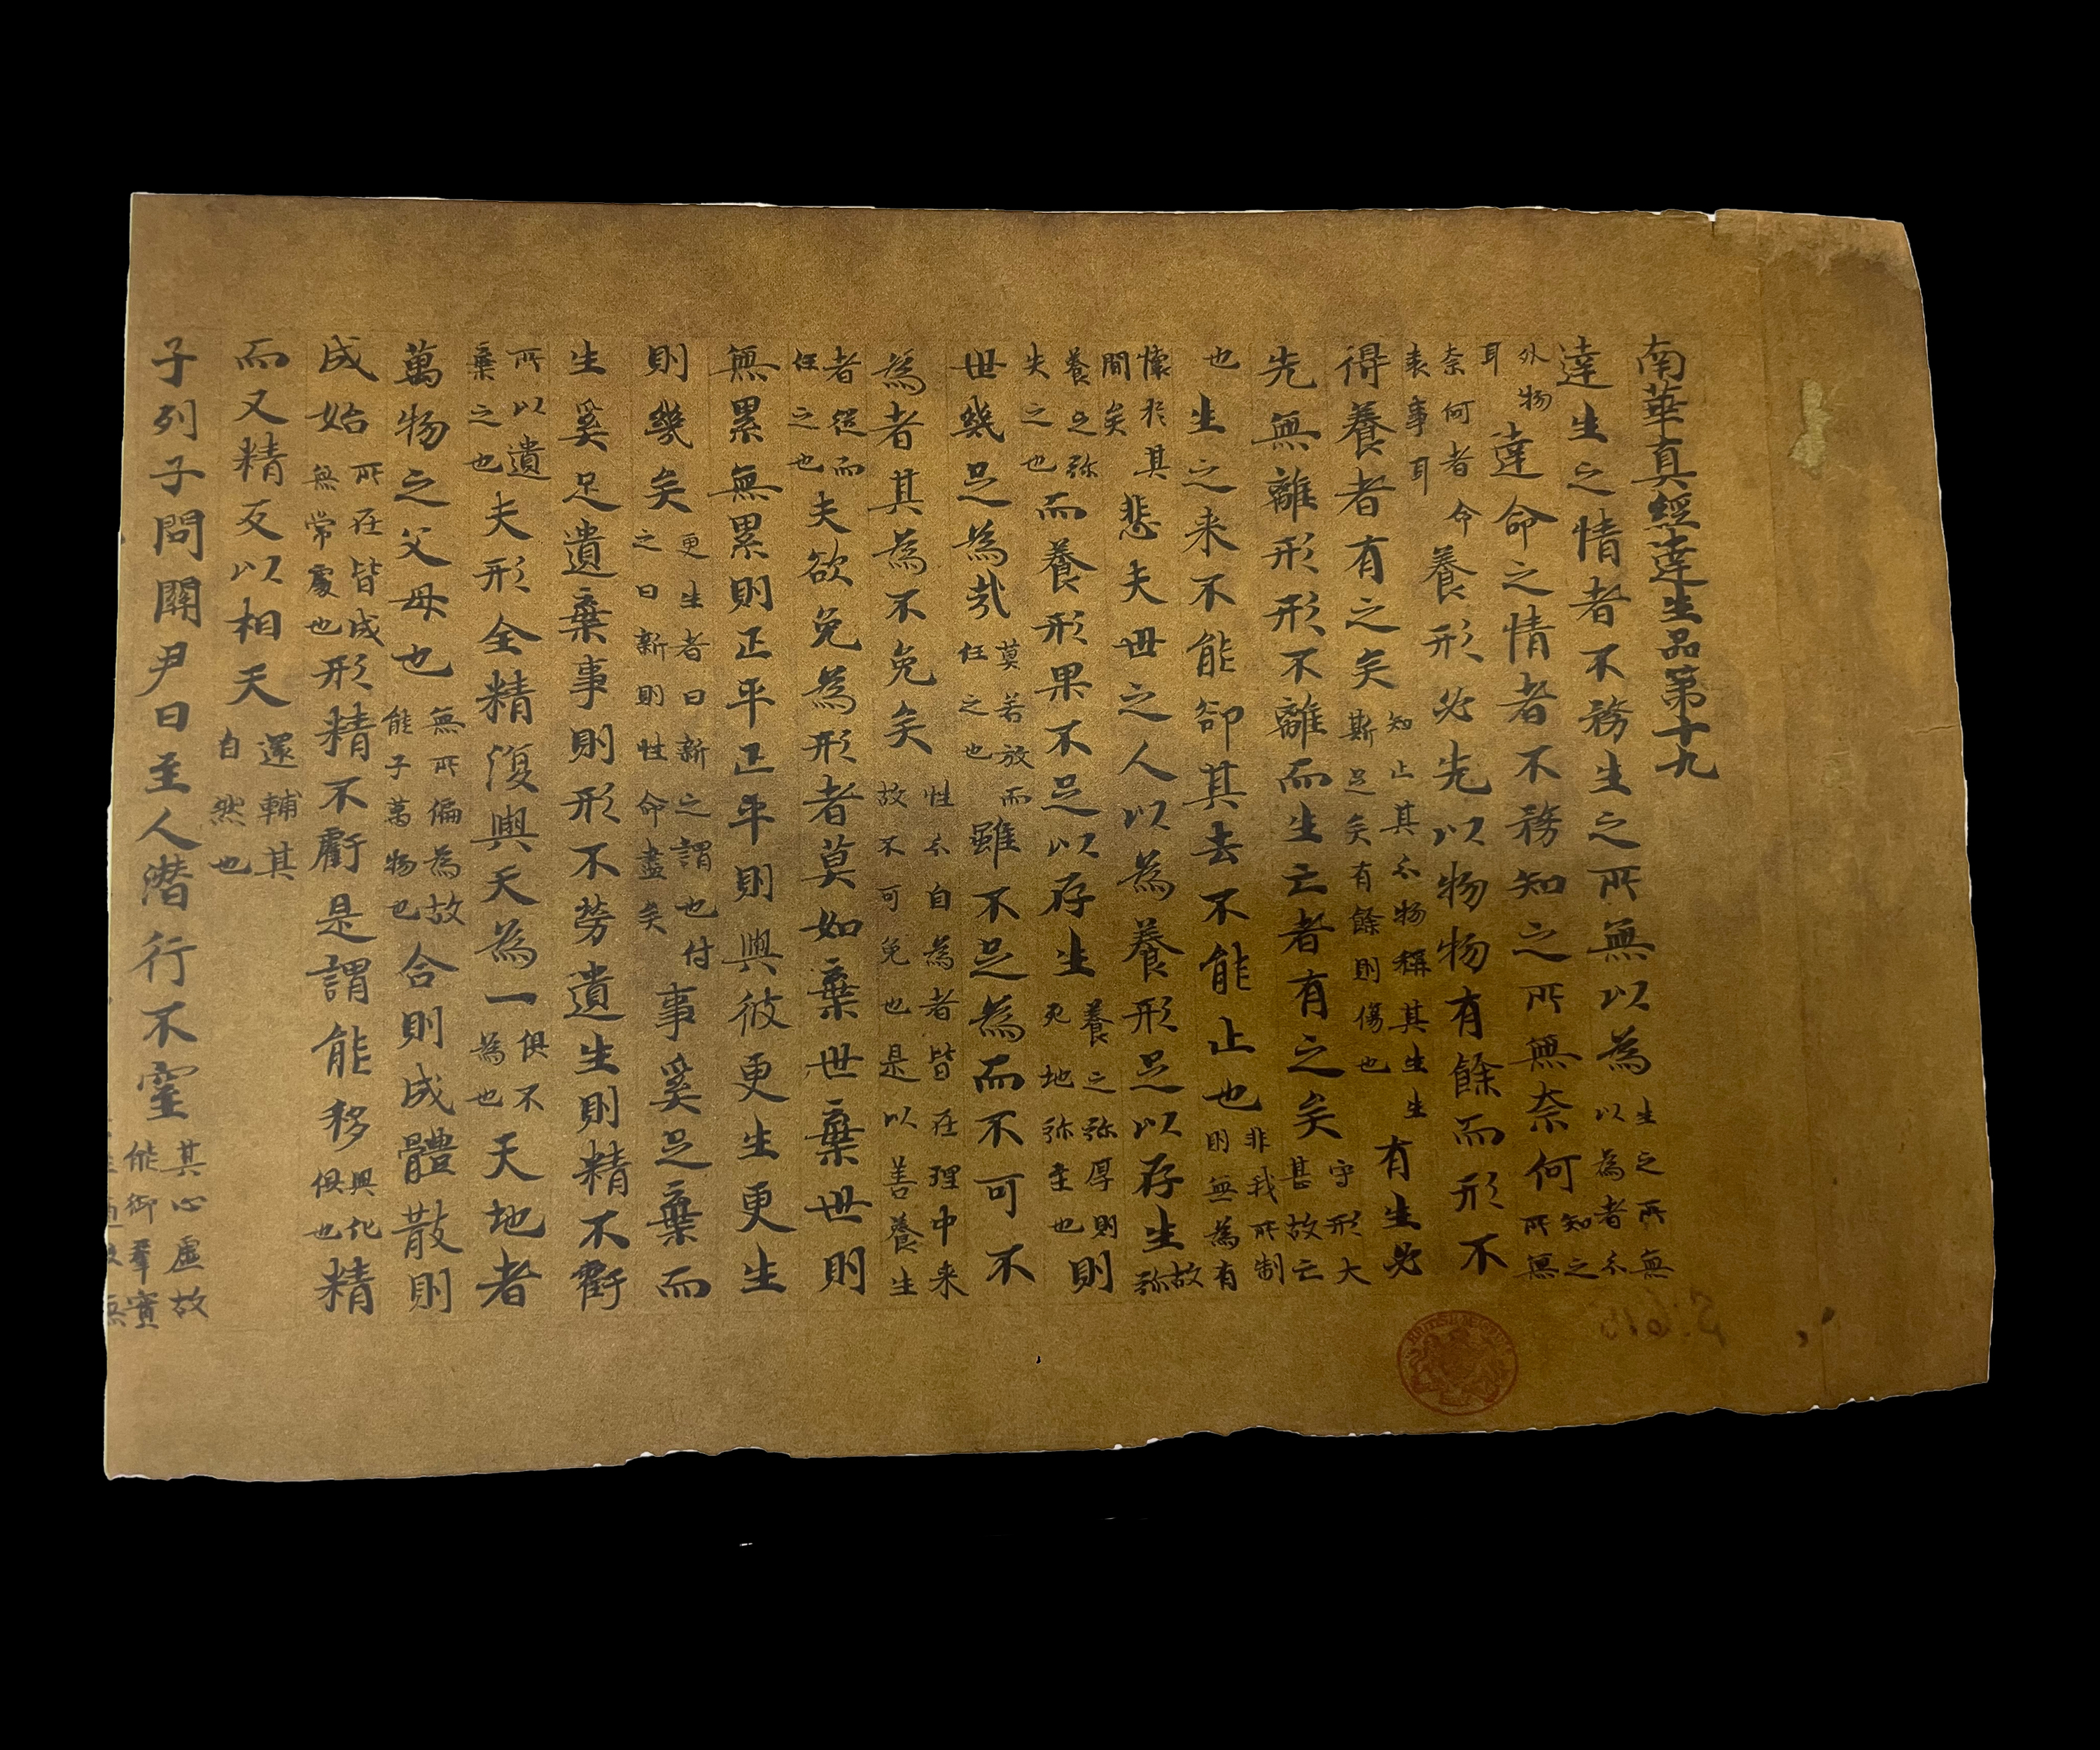 南華真經達生品第十九
達生之情者不務生之所無以為生之所無以為者分
外物耳達命之情者不務知之所無奈何知之所無
奈何者命表事耳養形必先以物物有餘而形不
得養者有之矣知止其分物稱其生生斯足矣有餘則傷也有生必
先無離形形不離而生亡者有之矣守形大甚故亡
也生之来不能卻其去不能止也非我所制則無為有
懷於其間矣悲夫世之人以為養形足以存生故弥
養之弥失之也而養形果不足以存生養之弥厚則死地弥至也則
世幾足為哉莫若放而任之也雖不足為而不可不
為者其為不免矣性分自為者皆在理中来故不可免也是以善養生
者從而任之也夫欲免為形者莫如棄世棄世則
無累無累則正平正平則與彼更生更生
則幾矣更生者日新之謂也付之日新則性命盡矣事奚足棄而
生奚足遺棄事則形不勞遺生則精不虧
所以遺棄之也夫形全精復與天為一俱不為也天地者
萬物之父母也無所偏為故能子萬物也合則成體散則
成始所在皆成無常處也形精不虧是謂能移與化俱也精
而又精反以相天還輔其自然也
子列子問關尹曰至人潛行不窒其心虛故能御羣實
BRITISH MUSEUM